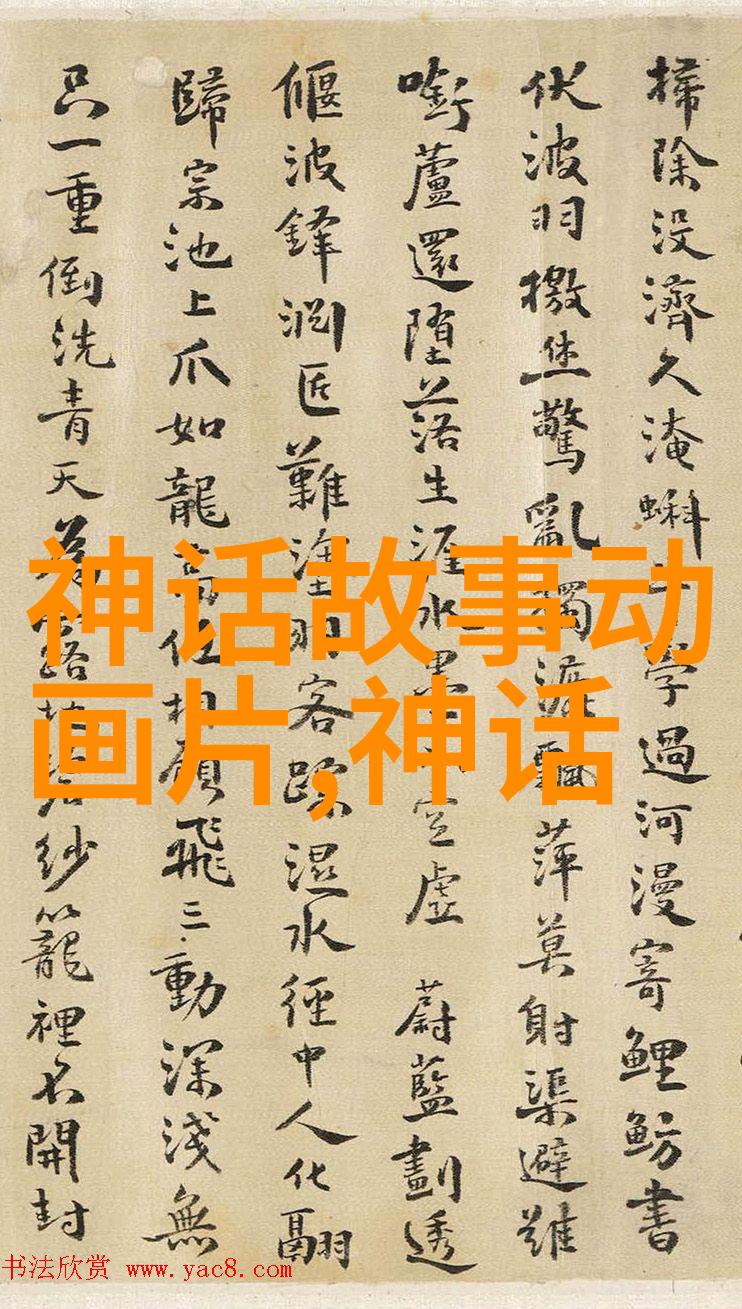 掃除没濟久淹蝌字過河漫寄鯉魴書
伏波羽檄無驚亂獨漉飄萍莫射渠避難
啣蘆還墮落生涯水墨空虛 蔚藍劃透
偃波鋒匠難客踪濕水經中人化翮
歸宗池上爪如龍任相飛三動深淺無
只一重倒洗青天露紗籠裡不開封
神话故事动
画片,神话
书法欣赏 www.yac8.com